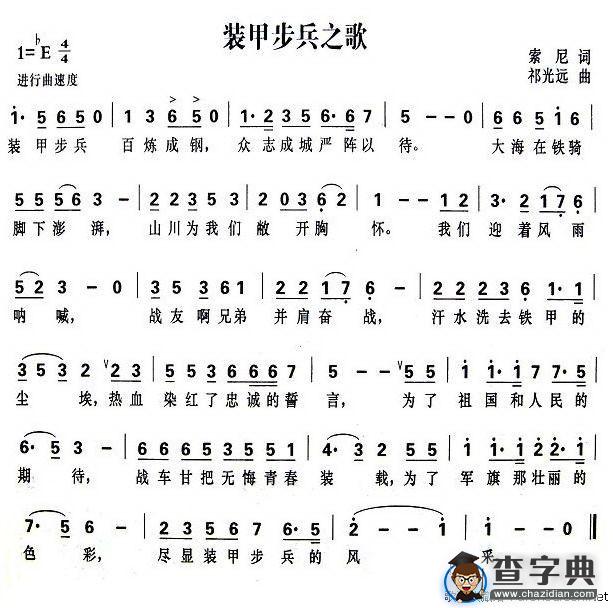 装甲步兵之歌
1=♭E 4/4
索尼 词
进行曲速度
祁光远 曲
1· 5 6 5 0 1 3 6 5 0 1· 2 3 5 0 6 1 7 5 - - 0 6 6 5 1 6
装 甲步兵 百炼成钢, 众志成城严阵以 待。 大海在铁骑
5 5 5 6 3 - 5 5 3 5 2 3 2 0 3 6 2 1 - - 1 2 3· 2 1 7 6
脚下澎 湃, 山川为我们 敞 开胸 怀。 我们 迎 着风雨
5 2 3 - 0 3 5 3 6 1 2 2 1 7 6 - - 0 2 2 3 6 1· 1
呐 喊, 战友啊兄弟 并肩奋 战, 汗水洗去铁甲的
3 5 3 - 2 3 5 5 3 2 6 6 6 7 5 - - 5 5 1· 1 1 7 7· 5
尘 埃,热血 染红了忠诚的誓 言, 为了 祖国和人民的
6· 5 3 - 6 6 6 5 3 5 5 1 3 - 1 3 2· 2 2 1 7 7 5
期 待, 战车甘把无悔青春 装 载,为了 军旗那壮丽的
7· 5 6 - 0 1 2 3 5 6 7 6· 5 2 1 - - 0
色 彩, 尽显装甲步兵的 风 采。
查字典
www.chazidian.com